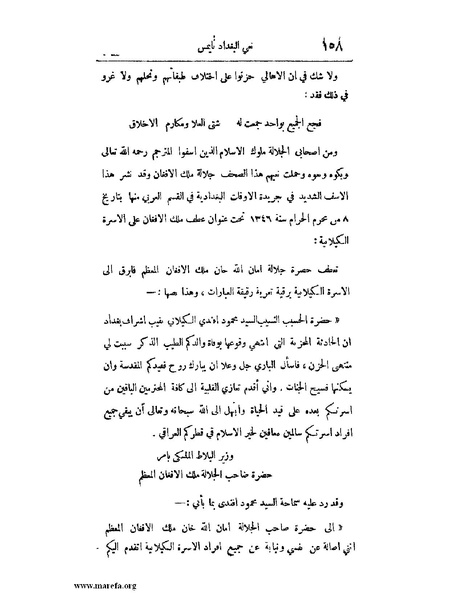 ١٥٨ نعي البغداد تايمس
ولا شك في ان الاهالي حزنوا على اختلاف طبقاتهم ونحلهم ولا غرو
في ذلك فقد :
فجع الجميع بواحد جمعت له شتى العلا ومكارم الاخلاق
ومن اصحاب الجلالة ملوك الاسلام الذين اسفوا المترجم رحمه الله تعالى
وبكوه ونعوه وحملت نعيهم هذا الصحف جلالة ملك الافغان وقد نشر هذا
الاسف الشديد في جريدة الاوقات البغدادية في القسم العربي منها بتاريخ
٨ من محرم الحرام سنة ١٣٤٦ تحت عنوان عطف ملك الافغان على الاسرة
الكيلانية :
تعطف حضرة جلالة امان الله خان ملك الافغان المعظم فابرق الى
الاسرة الكيلانية برقية تعزية رقيقة العبارات ، وهذا نصها :—
« حضرة الحسيب النسيب السيد محمود افندي الكيلاني نقيب اشراف بغداد
ان الحادثة المحزنة التي انتهى وقوعها بوفاة والدكم الطيب الذكر سببت لي
منتهى الحزن ، فاسأل الباري جل وعلا ان يبارك روح فقيدكم المقدسة وان
يسكنها فسيح الجنات . واني أقدم تعازي القلبية الى كافة المحترمين الباقين من
اسرتكم بعده على قيد الحياة وابتهل الى الله سبحانه وتعالى أن يبقي جميع
افراد اسرتكم سالمين معافين لخير الاسلام في قطركم العراقي .
وزير البلاط الملكي بامر
حضرة صاحب الجلالة ملك الافغان المعظم
وقد رد عليه سماحة السيد محمود افندي بما يأتي :—
« الى حضرة صاحب الجلالة امان الله خان ملك الافغان المعظم
انني اصالة عن نفسي ونيابة عن جميع افراد الاسرة الكيلانية اتقدم اليكم
www.marefa.org